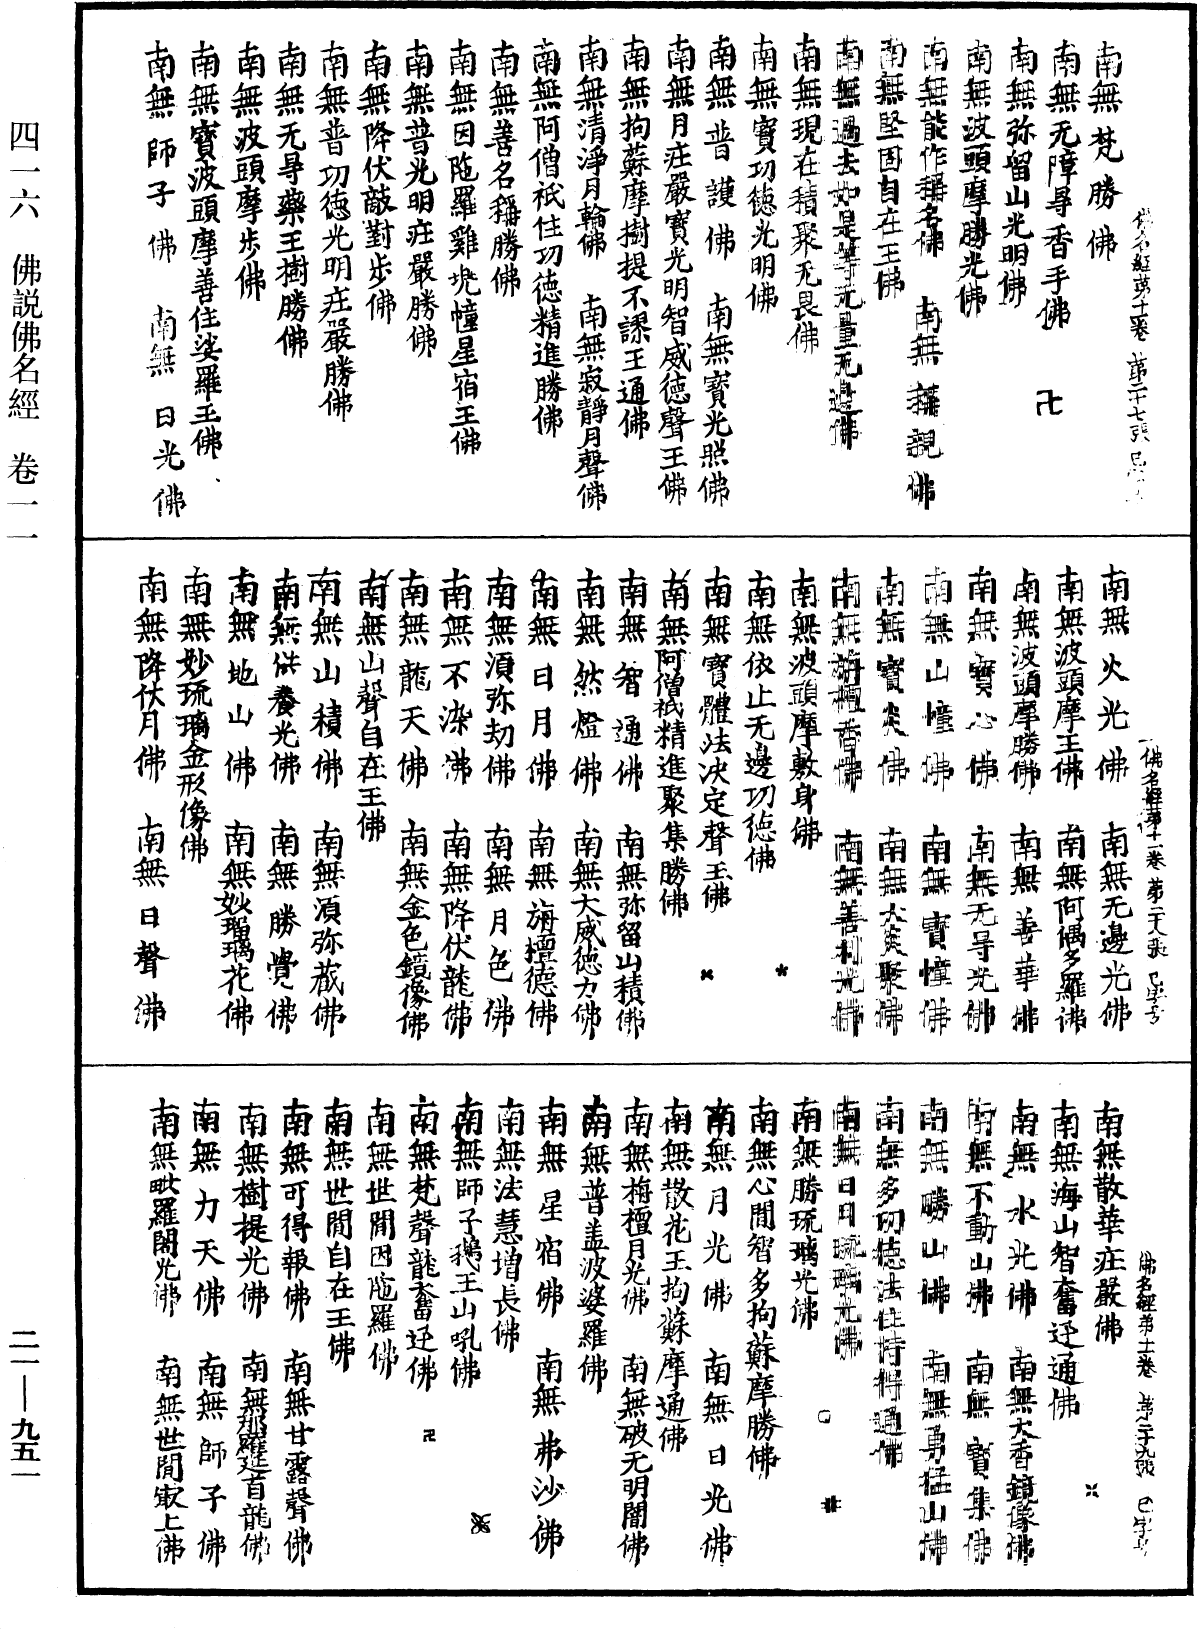 四一六 佛説佛名經 卷一一
二一—九五一
南無梵勝佛
南無无障㝵香手佛
南無弥留山光明佛
南無波頭摩勝光佛
南無能作稱名佛 南無稱說佛
南無堅固自在王佛
南無過去如是等无量无邊佛
南無現在積聚无畏佛
南無寶功德光明佛
南無普護佛 南無寶光照佛
南無月庄嚴寶光明智威德聲王佛
南無拘蘇摩樹提不謬王通佛
南無清淨月輪佛 南無寂靜月聲佛
南無阿僧祇住功德精進勝佛
南無善名稱勝佛
南無因陁羅雞兜幢星宿王佛
南無普光明庄嚴勝佛
南無降伏敵對步佛
南無普功德光明庄嚴勝佛
南無无㝵藥王樹勝佛
南無波頭摩步佛
南無寶波頭摩善住娑羅王佛
南無師子佛 南無日光佛
佛名經第十一卷 第二十八張 已字号
南無火光佛 南無无邊光佛
南無波頭摩王佛 南無阿偶多羅佛
南無波頭摩勝佛 南無善華佛
南無寶心佛 南無无㝵光佛
南無山幢佛 南無寶幢佛
南無寶炎佛 南無大炎聚佛
南無栴檀香佛 南無善利光佛
南無波頭摩敷身佛
南無依止无邊功德佛
南無寶體法決定聲王佛
南無阿僧祇精進聚集勝佛
南無智通佛 南無弥留山積佛
南無然燈佛 南無大威德力佛
南無日月佛 南無旃檀德佛
南無須弥劫佛 南無月色佛
南無不染佛 南無降伏龍佛
南無龍天佛 南無金色鏡像佛
南無山聲自在王佛
南無山積佛 南無須弥藏佛
南無供養光佛 南無勝覺佛
南無地山佛 南無妙瑠璃花佛
南無妙琉璃金形像佛
南無降伏月佛 南無日聲佛
南無散華庄嚴佛
南無海山智奮迅通佛
南無水光佛 南無大香鏡像佛
南無不動山佛 南無寶集佛
南無勝山佛 南無勇猛山佛
南無多功德法住持得通佛
南無日月琉璃光佛
南無勝琉璃光佛
南無心間智多拘蘇摩勝佛
南無月光佛 南無日光佛
南無散花王拘蘇摩通佛
南無栴檀月光佛 南無破无明闇佛
南無普盖波婆羅佛
南無星宿佛 南無弗沙佛
南無法慧增長佛
南無師子鵝王山吼佛
南無梵聲龍奮迅佛
南無世間因陁羅佛
南無世間自在王佛
南無可得報佛 南無甘露聲佛
南無樹提光佛 南無那羅延首龍佛
南無力天佛 南無師子佛
南無毗羅闍光佛 南無世間㝡上佛